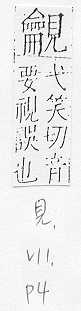 弋笑切音
要視誤也
見,
VII,
P4